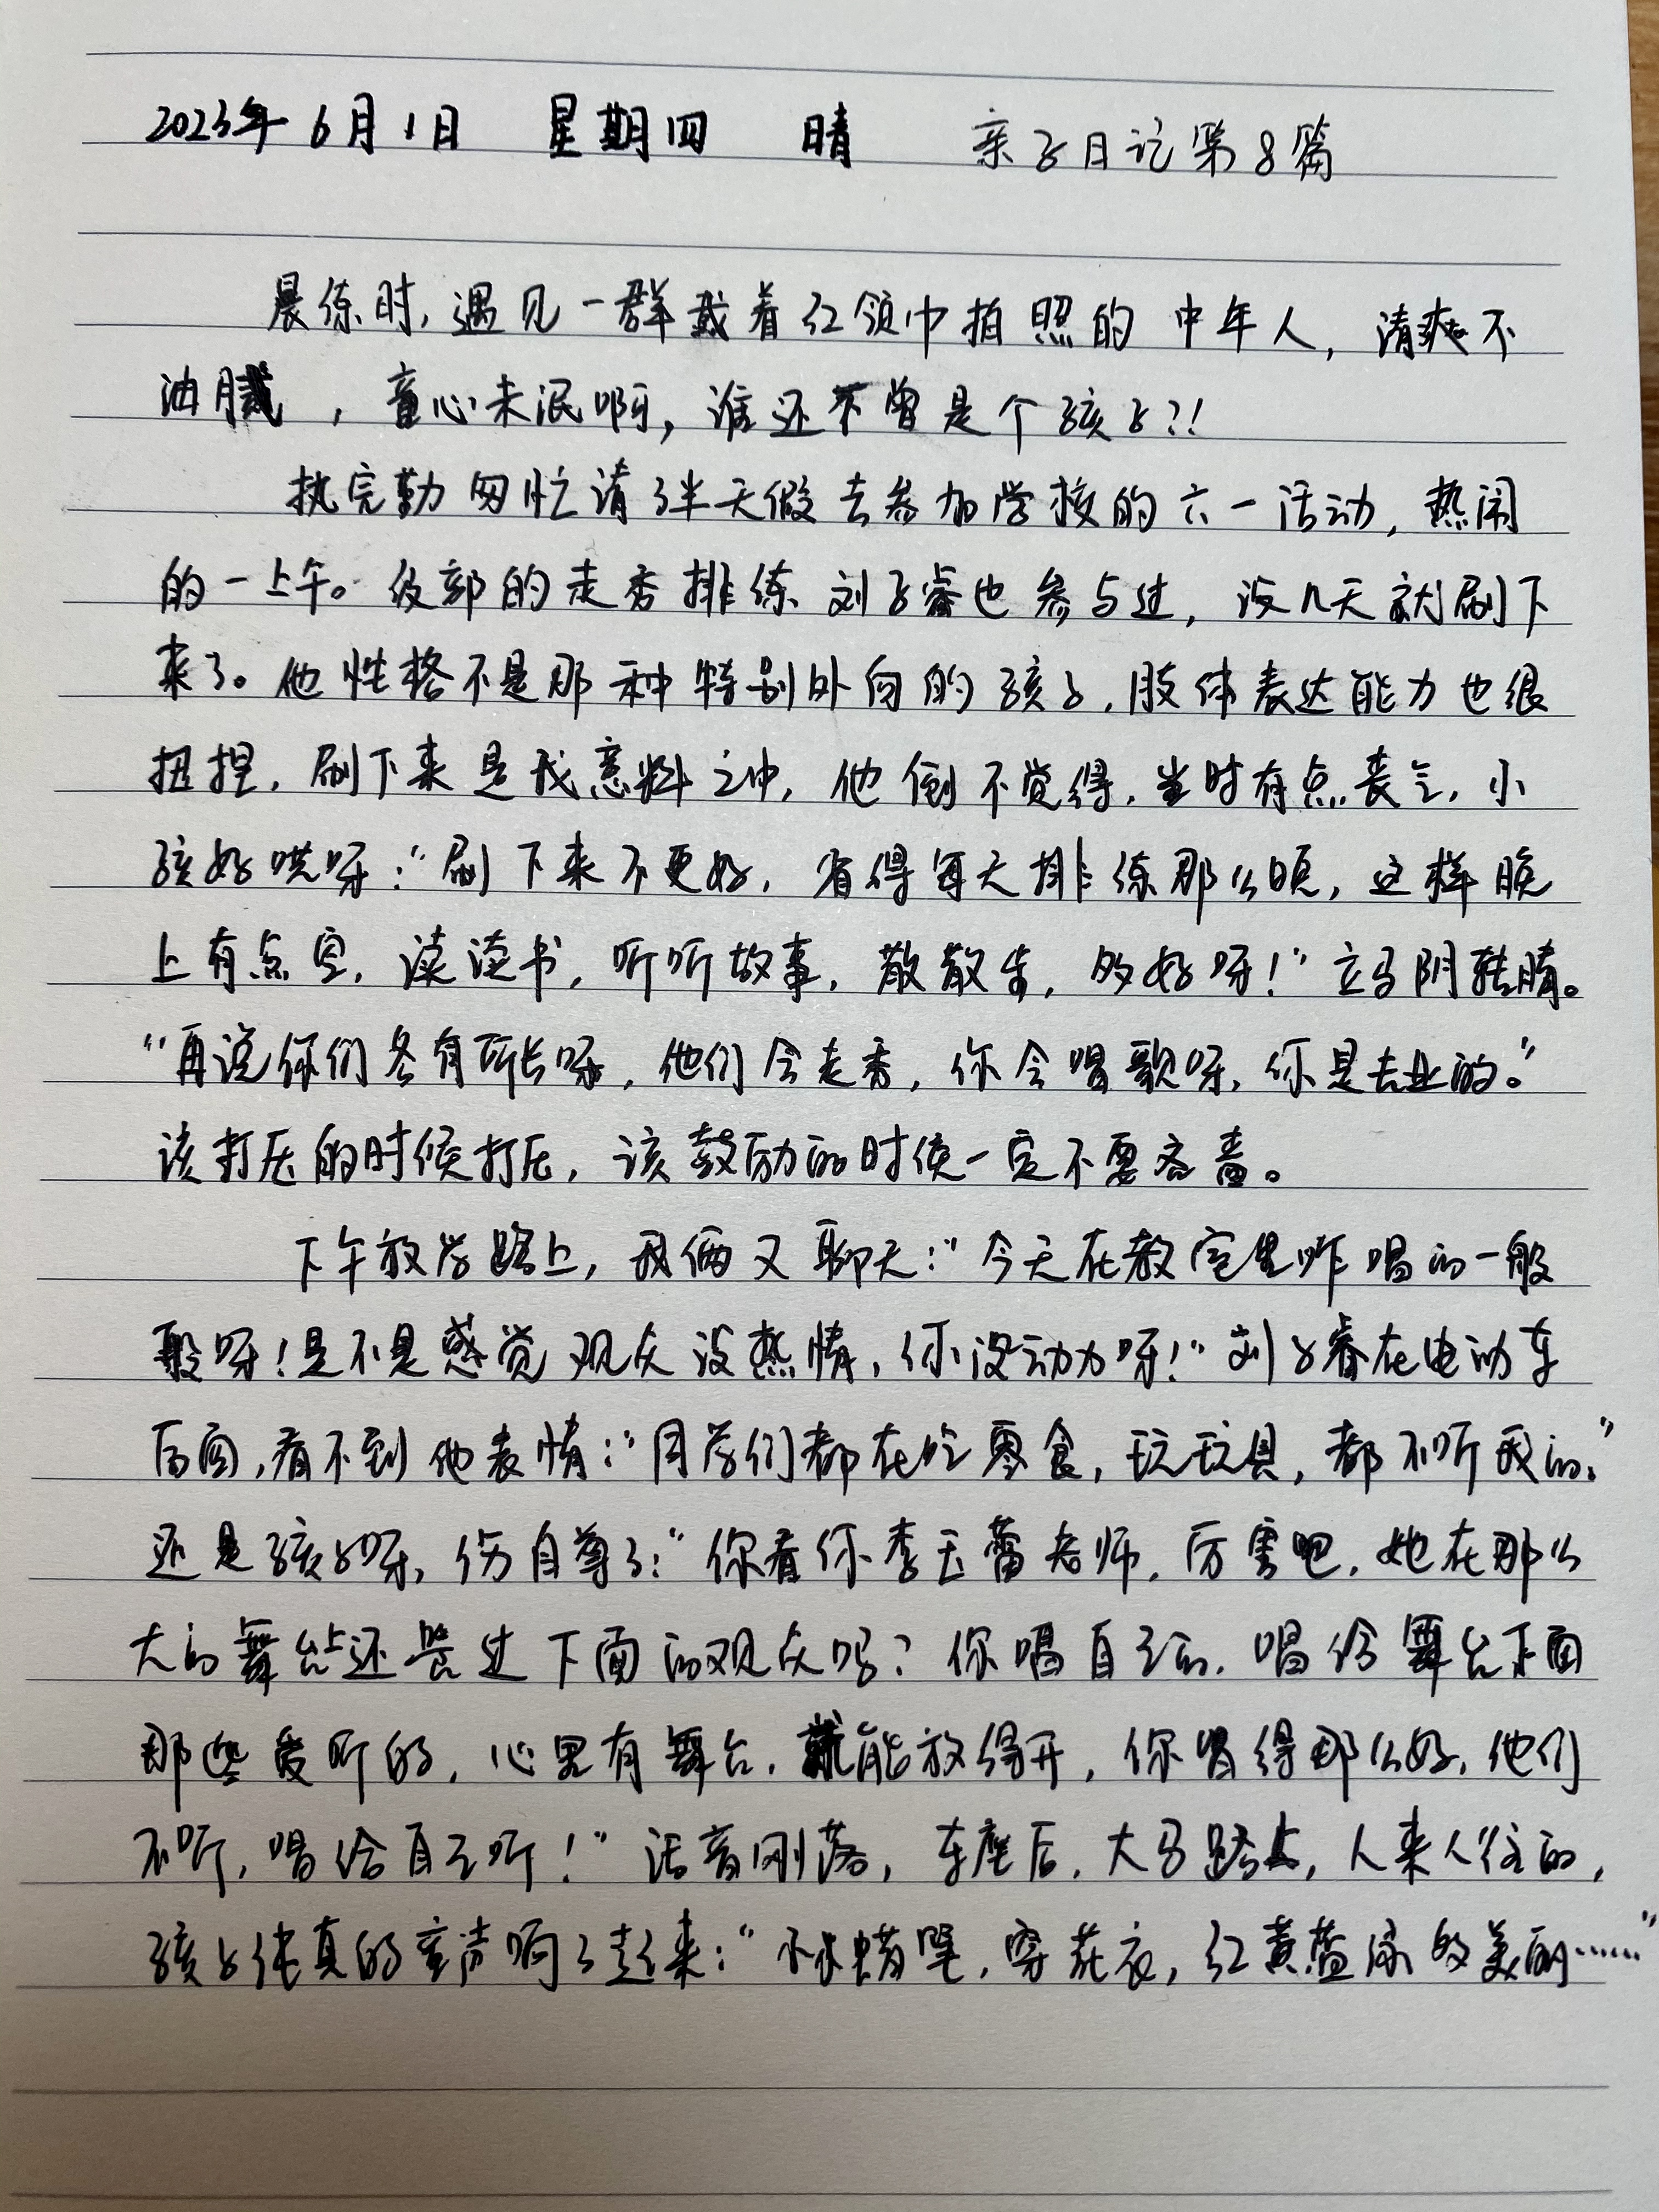 2023年6月1日 星期四 晴 亲子日记第8篇
晨练时,遇见一群戴着红领巾拍照的中年人,清爽不
油腻,童心未泯啊,谁还不曾是个孩子?!
执完勤匆忙请了半天假去参加学校的六一活动,热闹
的一上午。级部的走秀排练刘子睿也参与过,没几天就刷下
来了。他性格不是那种特别外向的孩子,肢体表达能力也很
扭捏,刷下来是我意料之中,他倒不觉得,当时有点丧气,小
孩好哄呀:“刷下来不更好,省得每天排练那么烦,这样晚
上有点空,读读书,听听故事,散散步,多好呀!”立马阴转晴。
“再说你们各有所长呀,他们会走秀,你会唱歌呀,你是专业的。”
该打压的时候打压,该鼓励的时候一定不要吝啬。
下午放学路上,我俩又聊天:“今天在教室里咋唱的一般
般呀!是不是感觉观众没热情,你没动力呀!”刘子睿在电动车
后面,看不到他表情:“同学们都在吃零食,玩玩具,都不听我的。”
还是孩子呀,伤自尊了:“你看你李玉蕾老师,厉害吧,她在那么
大的舞台还管过下面的观众吗?你唱自己的,唱给舞台下面
那些爱听的,心里有舞台,就能放得开,你唱得那么好,他们
不听,唱给自己听!”话音刚落,车座后,大马路上,人来人往的,
孩子纯真的童声响了起来:“小小蜡笔,穿花衣,红黄蓝绿多美丽……”